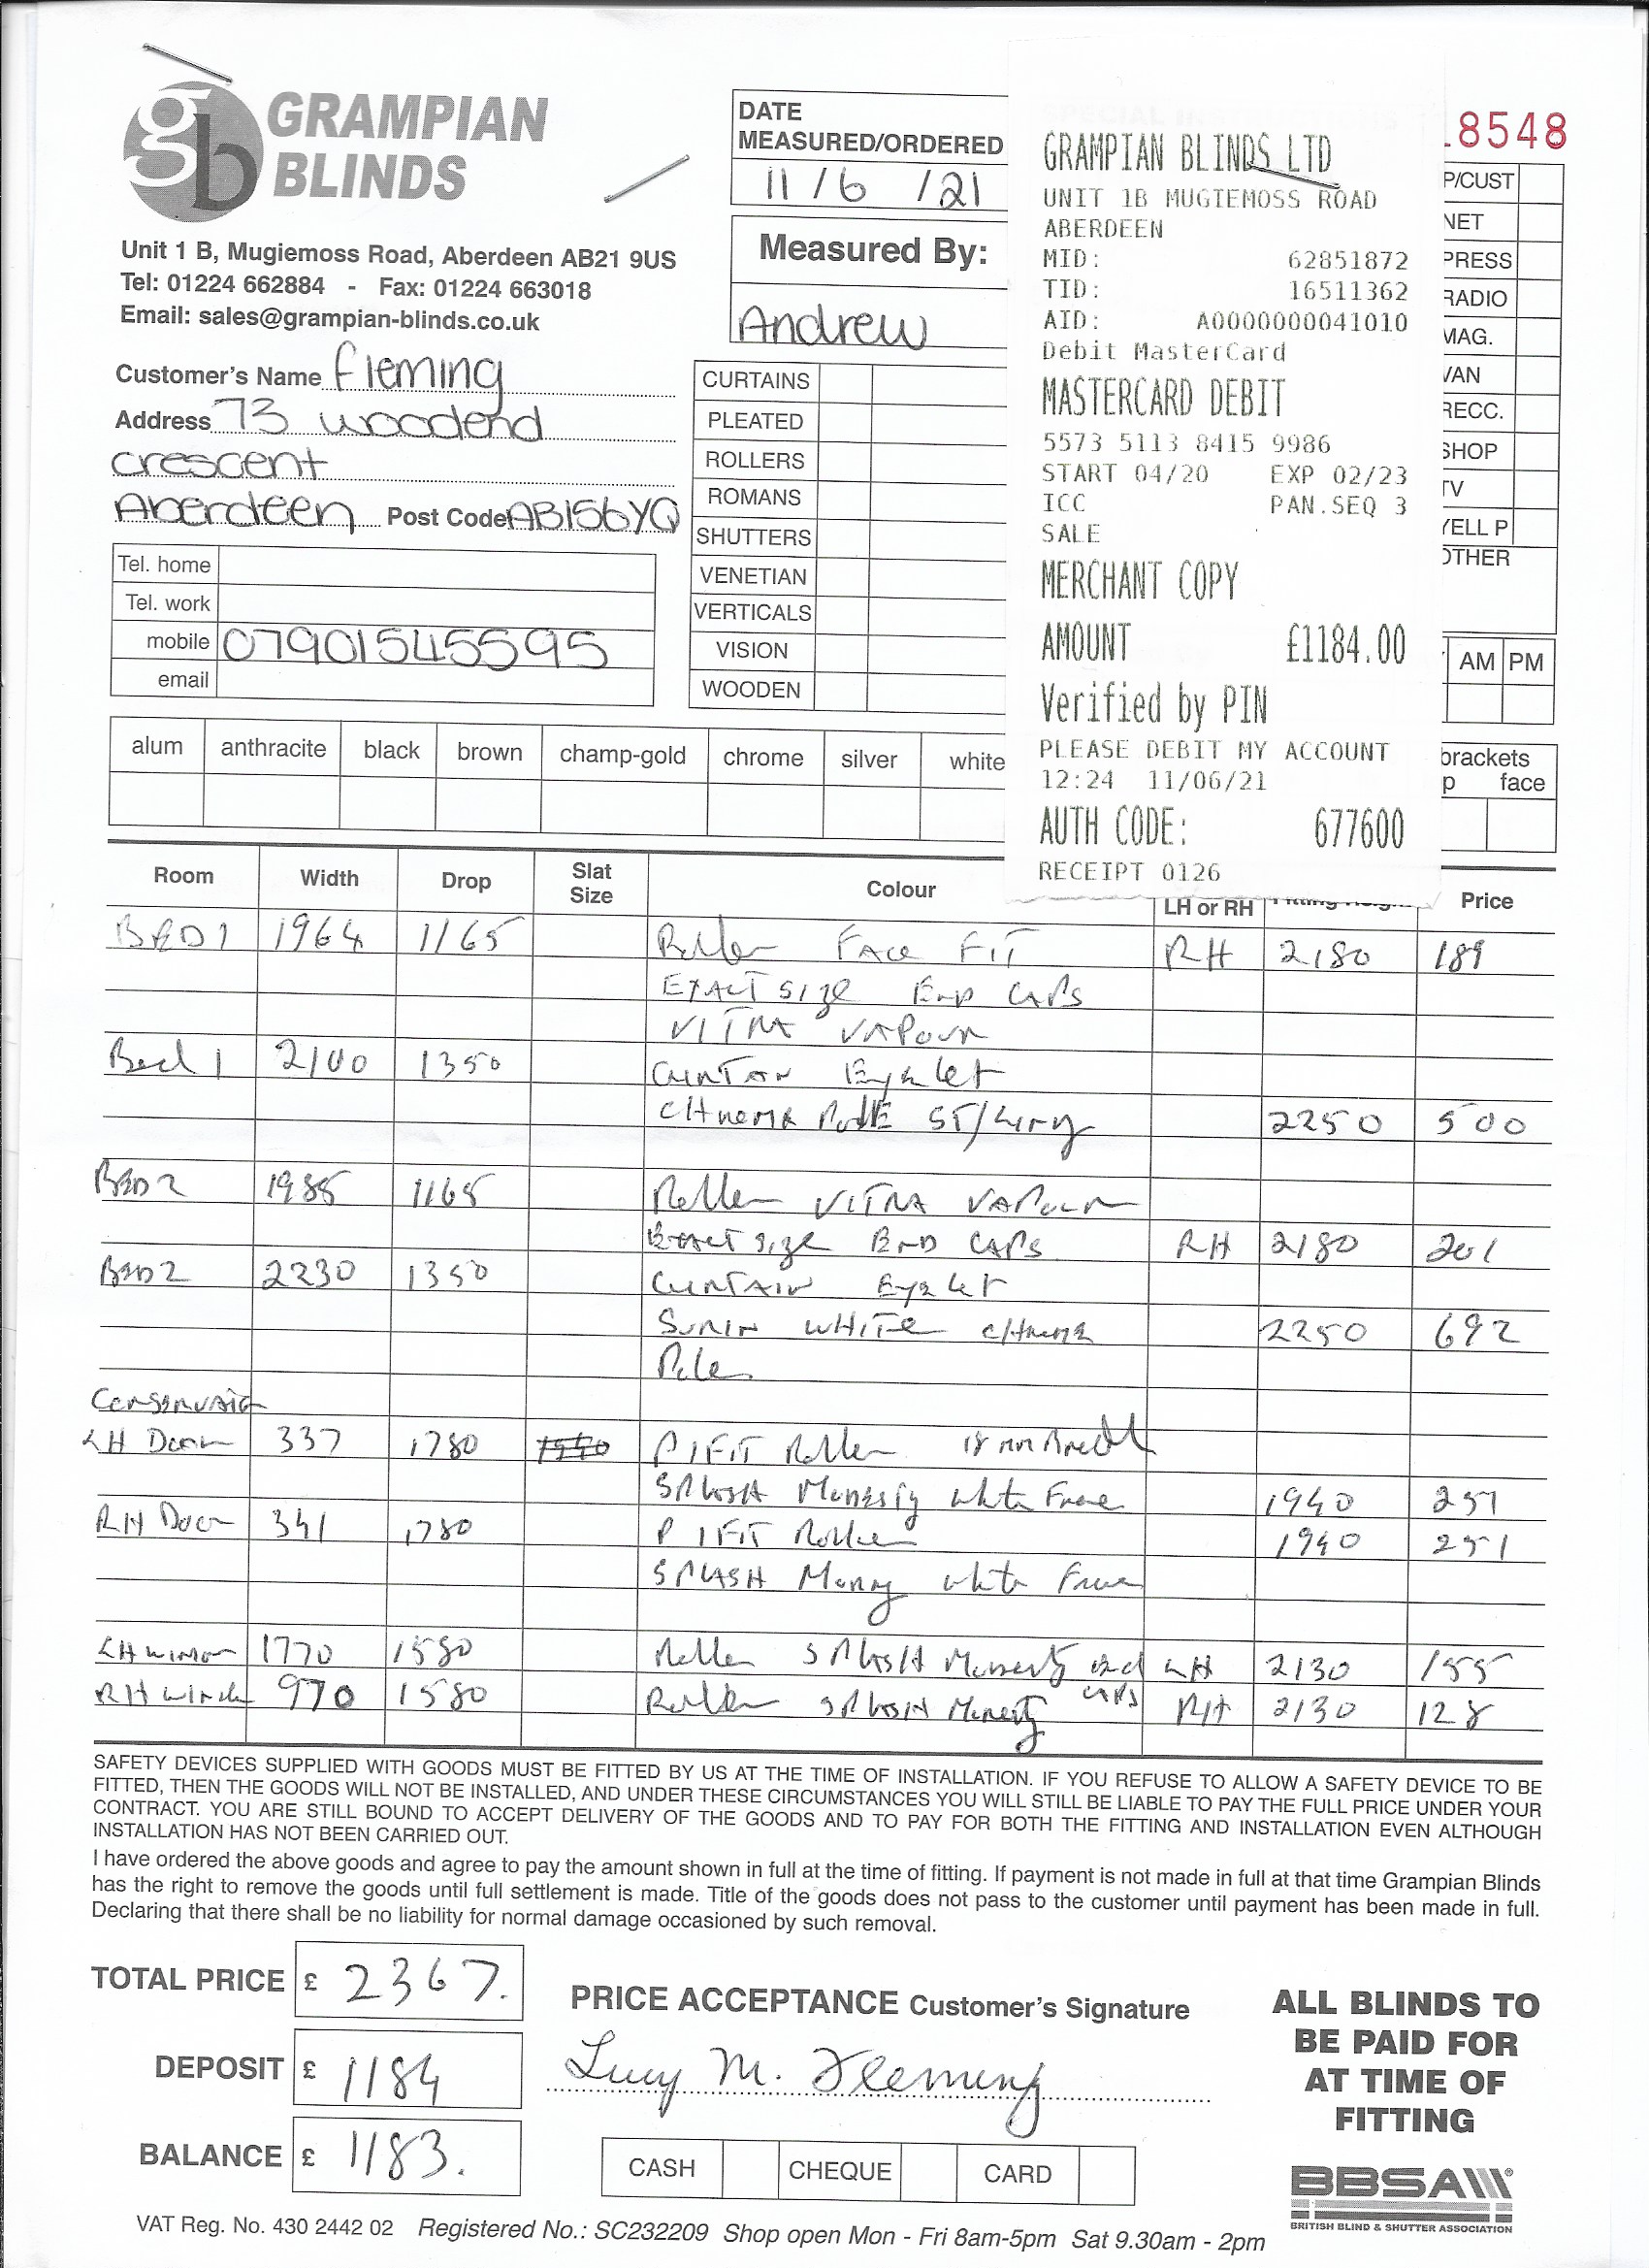 GRAMPIAN
BLINDS
Unit 1 B, Mugiemoss Road, Aberdeen AB21 9US
Tel: 01224 662884 - Fax: 01224 663018
Email: sales@grampian-blinds.co.uk
Customer's Name Fleming
Address 73 woodend
crescent
Aberdeen Post Code AB156YQ
Tel. home
Tel. work
mobile 07901545595
email
DATE
MEASURED/ORDERED
11/6/21
Measured By:
Andrew
CURTAINS
PLEATED
ROLLERS
ROMANS
SHUTTERS
VENETIAN
VERTICALS
VISION
WOODEN
GRAMPIAN BLINDS LTD
UNIT 1B MUGIEMOSS ROAD
ABERDEEN
MID: 62851872
TID: 16511362
AID: A0000000041010
Debit MasterCard
MASTERCARD DEBIT
5573 5113 8415 9986
START 04/20 EXP 02/23
ICC PAN.SEQ 3
SALE
MERCHANT COPY
AMOUNT £1184.00
Verified by PIN
PLEASE DEBIT MY ACCOUNT
12:24 11/06/21
AUTH CODE: 677600
RECEIPT 0126
8548
P/CUST
NET
PRESS
RADIO
MAG.
VAN
RECC.
SHOP
TV
YELL P
OTHER
AM PM
alum anthracite black brown champ-gold chrome silver white
brackets
p face
Room Width Drop Slat Size Colour LH or RH Price
BED1 1964 1165 Roller FACE FIT RH 2180 189
EXACT SIZE END CAPS
VITRA VAPOUR
Bed 1 2100 1350 CURTAIN Eyelet
CHROME POLE 2250 500
BED2 1985 1165 Roller VITRA VAPOUR
EXACT SIZE END CAPS RH 2180 201
BED2 2230 1350 CURTAIN Eyelet
WHITE CHROME 2250 692
Pole
LH Door 337 1780 P/FIT Roller 18mm
SPLASH White Frame 1940 251
RH Door 341 1780 P/FIT Roller 1940 251
SPLASH White Frame
LH window 1770 1580 Roller SPLASH end LH 2130 155
RH window 970 1580 Roller SPLASH caps RH 2130 128
SAFETY DEVICES SUPPLIED WITH GOODS MUST BE FITTED BY US AT THE TIME OF INSTALLATION. IF YOU REFUSE TO ALLOW A SAFETY DEVICE TO BE
FITTED, THEN THE GOODS WILL NOT BE INSTALLED, AND UNDER THESE CIRCUMSTANCES YOU WILL STILL BE LIABLE TO PAY THE FULL PRICE UNDER YOUR
CONTRACT. YOU ARE STILL BOUND TO ACCEPT DELIVERY OF THE GOODS AND TO PAY FOR BOTH THE FITTING AND INSTALLATION EVEN ALTHOUGH
INSTALLATION HAS NOT BEEN CARRIED OUT.
I have ordered the above goods and agree to pay the amount shown in full at the time of fitting. If payment is not made in full at that time Grampian Blinds
has the right to remove the goods until full settlement is made. Title of the goods does not pass to the customer until payment has been made in full.
Declaring that there shall be no liability for normal damage occasioned by such removal.
TOTAL PRICE £ 2367.
DEPOSIT £ 1184
BALANCE £ 1183.
PRICE ACCEPTANCE Customer's Signature
Lucy M. Fleming
CASH CHEQUE CARD
ALL BLINDS TO
BE PAID FOR
AT TIME OF
FITTING
BBSA
BRITISH BLIND & SHUTTER ASSOCIATION
VAT Reg. No. 430 2442 02 Registered No.: SC232209 Shop open Mon - Fri 8am-5pm Sat 9.30am - 2pm